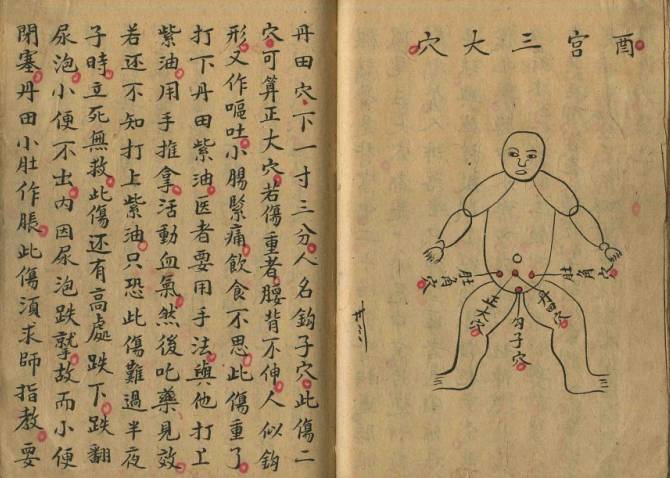 酉宮三大穴
肚角穴
肚角穴
丹田穴
勾子穴
正大穴
丹田穴下一寸三分人名鈎子穴此傷二
穴可算正大穴若傷重者腰背不伸人似鈎
形又作嘔吐小腸緊痛飲食不思此傷重了
打下丹田紫油医者要用手法與他打上
紫油用手推拿活動血氣然後叱藥見效
若还不知打上紫油只恐此傷難過半夜
子時立死無救此傷还有高處跌下跌翻
尿泡小便不出內因尿泡跌故而小便
閉塞丹田小肚作脹此傷須求師指教要